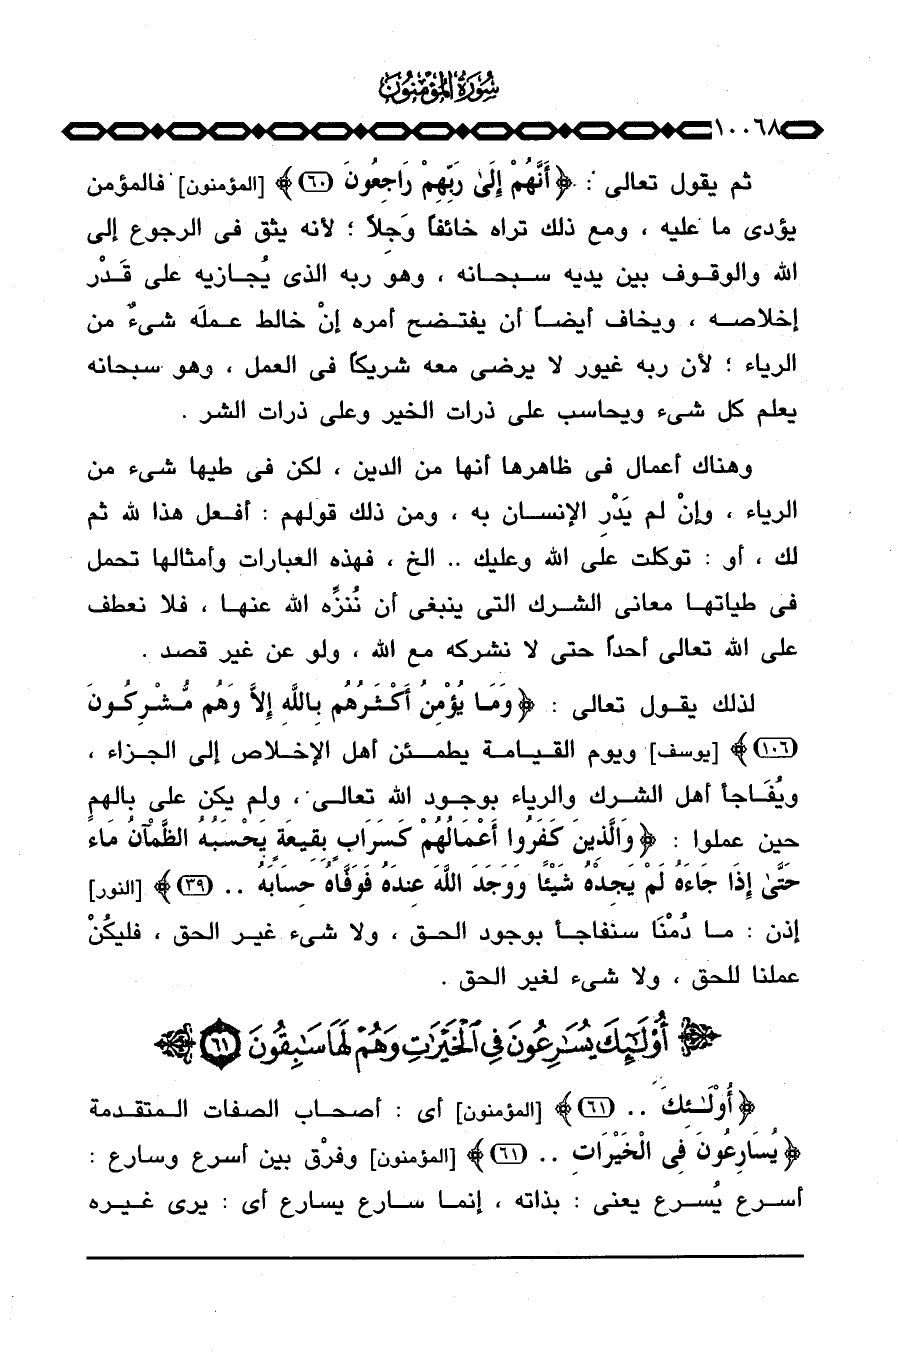 سُورَةُ المُؤْمِنُونَ
١٠٠٦٨
ثم يقول تعالى : ﴿ أَنَّهُمْ إِلَىٰ رَبِّهِمْ رَاجِعُونَ (٦٠) ﴾ [المؤمنون] فالمؤمن
يؤدى ما عليه ، ومع ذلك تراه خائفاً وَجِلاً ؛ لأنه يثق فى الرجوع إلى
الله والوقوف بين يديه سبحانه ، وهو ربه الذى يُجازيه على قَدْر
إخلاصه ، ويخاف أيضاً أن يفتضح أمره إنْ خالط عملَه شىءٌ من
الرياء ؛ لأن ربه غيور لا يرضى معه شريكاً فى العمل ، وهو سبحانه
يعلم كل شىء ويحاسب على ذرات الخير وعلى ذرات الشر .
وهناك أعمال فى ظاهرها أنها من الدين ، لكن فى طيها شىء من
الرياء ، وإنْ لم يَدْرِ الإنسان به ، ومن ذلك قولهم : أفعل هذا لله ثم
لك ، أو : توكلت على الله وعليك .. الخ ، فهذه العبارات وأمثالها تحمل
فى طياتها معانى الشرك التى ينبغى أن نُنزِّه الله عنها ، فلا نعطف
على الله تعالى أحداً حتى لا نشركه مع الله ، ولو عن غير قصد .
لذلك يقول تعالى : ﴿ وَمَا يُؤْمِنُ أَكْثَرُهُم بِاللَّهِ إِلاَّ وَهُم مُّشْرِكُونَ
(١٠٦) ﴾ [يوسف] ويوم القيامة يطمئن أهل الإخلاص إلى الجزاء ،
ويُفَاجأ أهل الشرك والرياء بوجود الله تعالى ، ولم يكن على بالهم
حين عملوا : ﴿ وَالَّذِينَ كَفَرُوا أَعْمَالُهُمْ كَسَرَابٍ بِقِيعَةٍ يَحْسَبُهُ الظَّمْآنُ مَاءً
حَتَّىٰ إِذَا جَاءَهُ لَمْ يَجِدْهُ شَيْئًا وَوَجَدَ اللَّهَ عِندَهُ فَوَفَّاهُ حِسَابَهُ .. (٣٩) ﴾ [النور]
إذن : ما دُمْنَا سنفاجأ بوجود الحق ، ولا شىء غير الحق ، فليكُنْ
عملنا للحق ، ولا شىء لغير الحق .
أُوْلَٰٓئِكَ يُسَٰرِعُونَ فِى ٱلْخَيْرَٰتِ وَهُمْ لَهَا سَٰبِقُونَ ٦١
﴿ أُوْلَـٰئِكَ .. (٦١) ﴾ [المؤمنون] أى : أصحاب الصفات المتقدمة
﴿ يُسَارِعُونَ فِى الْخَيْرَاتِ .. (٦١) ﴾ [المؤمنون] وفرْق بين أسرع وسارع :
أسرع يُسرع يعنى : بذاته ، إنما سارع يسارع أى : يرى غيره